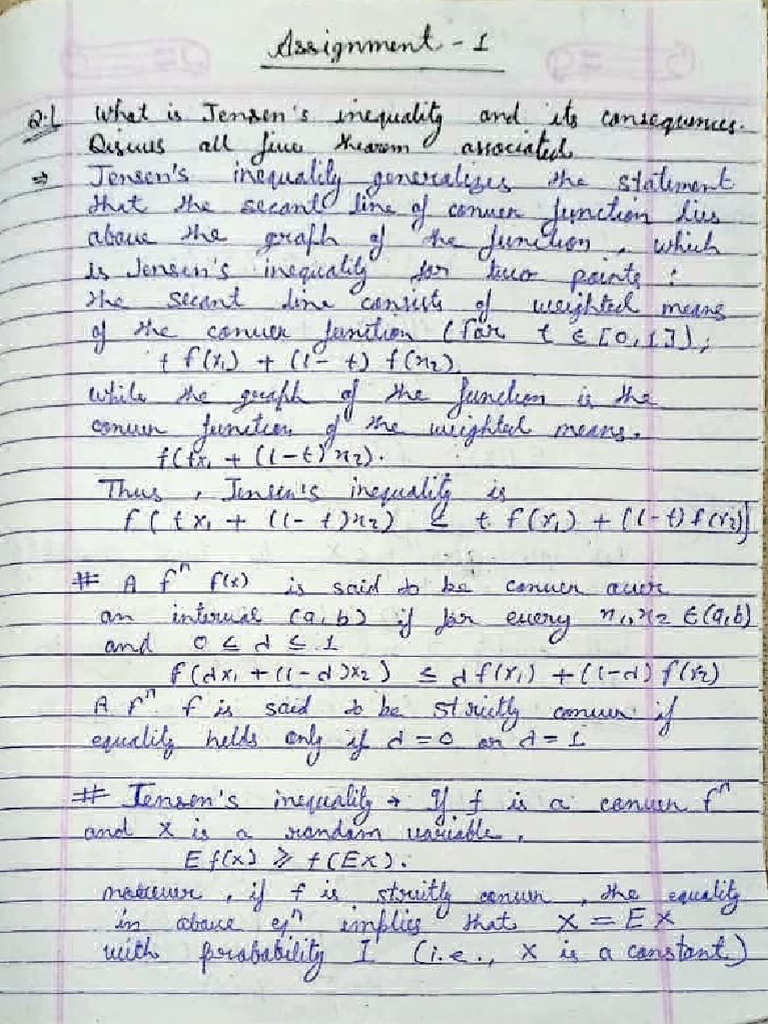 Assignment - 1
Q.1 What is Jensen's inequality and its consequences.
Discuss all five thearem associated.
⇒ Jensen's inequality generalizes the statement
that the secant line of convex function lies
above the graph of the function, which
is Jensen's inequality for two points :
the secant line consists of weighted means
of the convex function (for t ∈ [0,1]),
t f(x₁) + (1- t) f(x₂)
while the graph of the function is the
convex function of the weighted means.
f(tx₁ + (1-t) x₂).
Thus, Jensen's inequality is
f( t x₁ + (1- t)x₂) ≤ t f(x₁) + (1-t) f(x₂)
# A fⁿ f(x) is said to be convex over
an interval (a,b) if for every x₁,x₂ ∈(a,b)
and 0 ≤ d ≤ 1
f(dx₁ + (1-d)x₂) ≤ d f(x₁) + (1-d) f(x₂)
A fⁿ f is said to be strictly convex if
equality holds only if d = 0 or d = 1
# Jensen's inequality → If f is a convex fⁿ
and X is a random variable,
E f(x) ≥ f(Ex).
moreover, if f is strictly convex, the equality
in above eqⁿ implies that X = E X
with probability 1 (i.e., X is a constant)